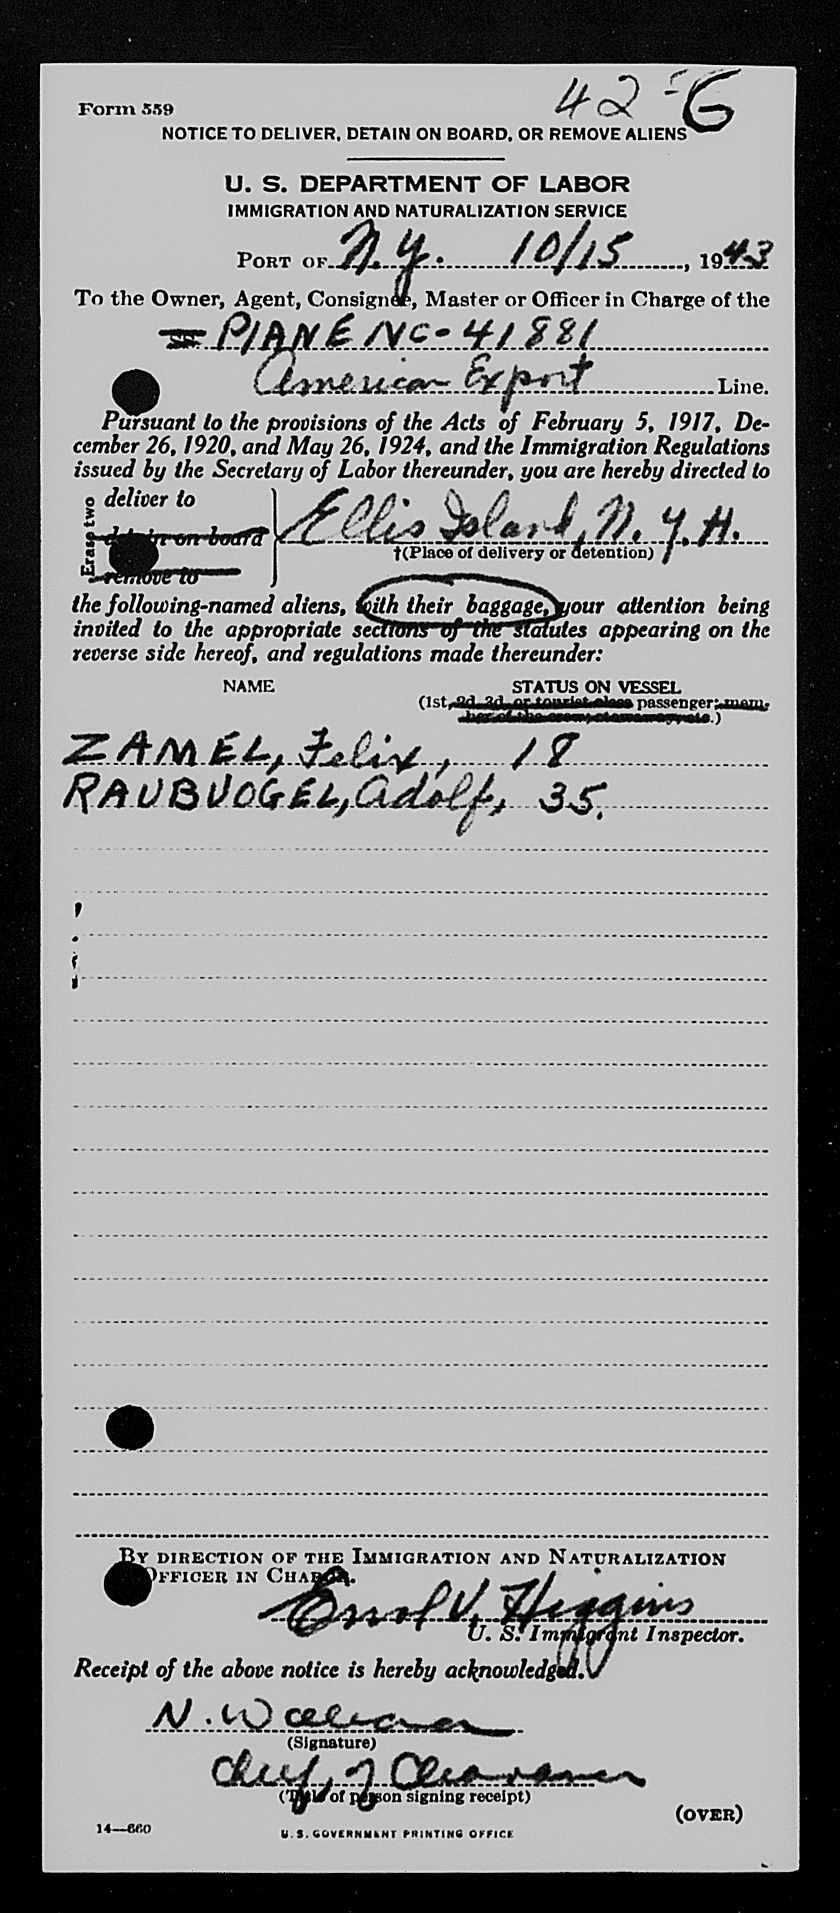 42-G
Form 559
NOTICE TO DELIVER, DETAIN ON BOARD, OR REMOVE ALIENS
U. S. DEPARTMENT OF LABOR
IMMIGRATION AND NATURALIZATION SERVICE
PORT OF N.Y. 10/15, 1943
To the Owner, Agent, Consignee, Master or Officer in Charge of the
SS PlANE NC-41881
American Export Line.
Pursuant to the provisions of the Acts of February 5, 1917, De-
cember 26, 1920, and May 26, 1924, and the Immigration Regulations
issued by the Secretary of Labor thereunder, you are hereby directed to
Erase two
deliver to
detain on board Ellis Island, N.Y.H.
†(Place of delivery or detention)
remove to
the following-named aliens, with their baggage, your attention being
invited to the appropriate sections of the statutes appearing on the
reverse side hereof, and regulations made thereunder:
NAME STATUS ON VESSEL
(1st, 2d, 3d, or tourist class passenger; mem-
ber of the crew, stowaway, etc.)
ZAMEL, Felix, 18
RAUBVOGEL, Adolf, 35.
BY DIRECTION OF THE IMMIGRATION AND NATURALIZATION
OFFICER IN CHARGE.
V. Higgins
U. S. Immigrant Inspector.
Receipt of the above notice is hereby acknowledged.
N.
(Signature)
Chief of
(Title of person signing receipt)
(OVER)
14—660 U. S. GOVERNMENT PRINTING OFFICE